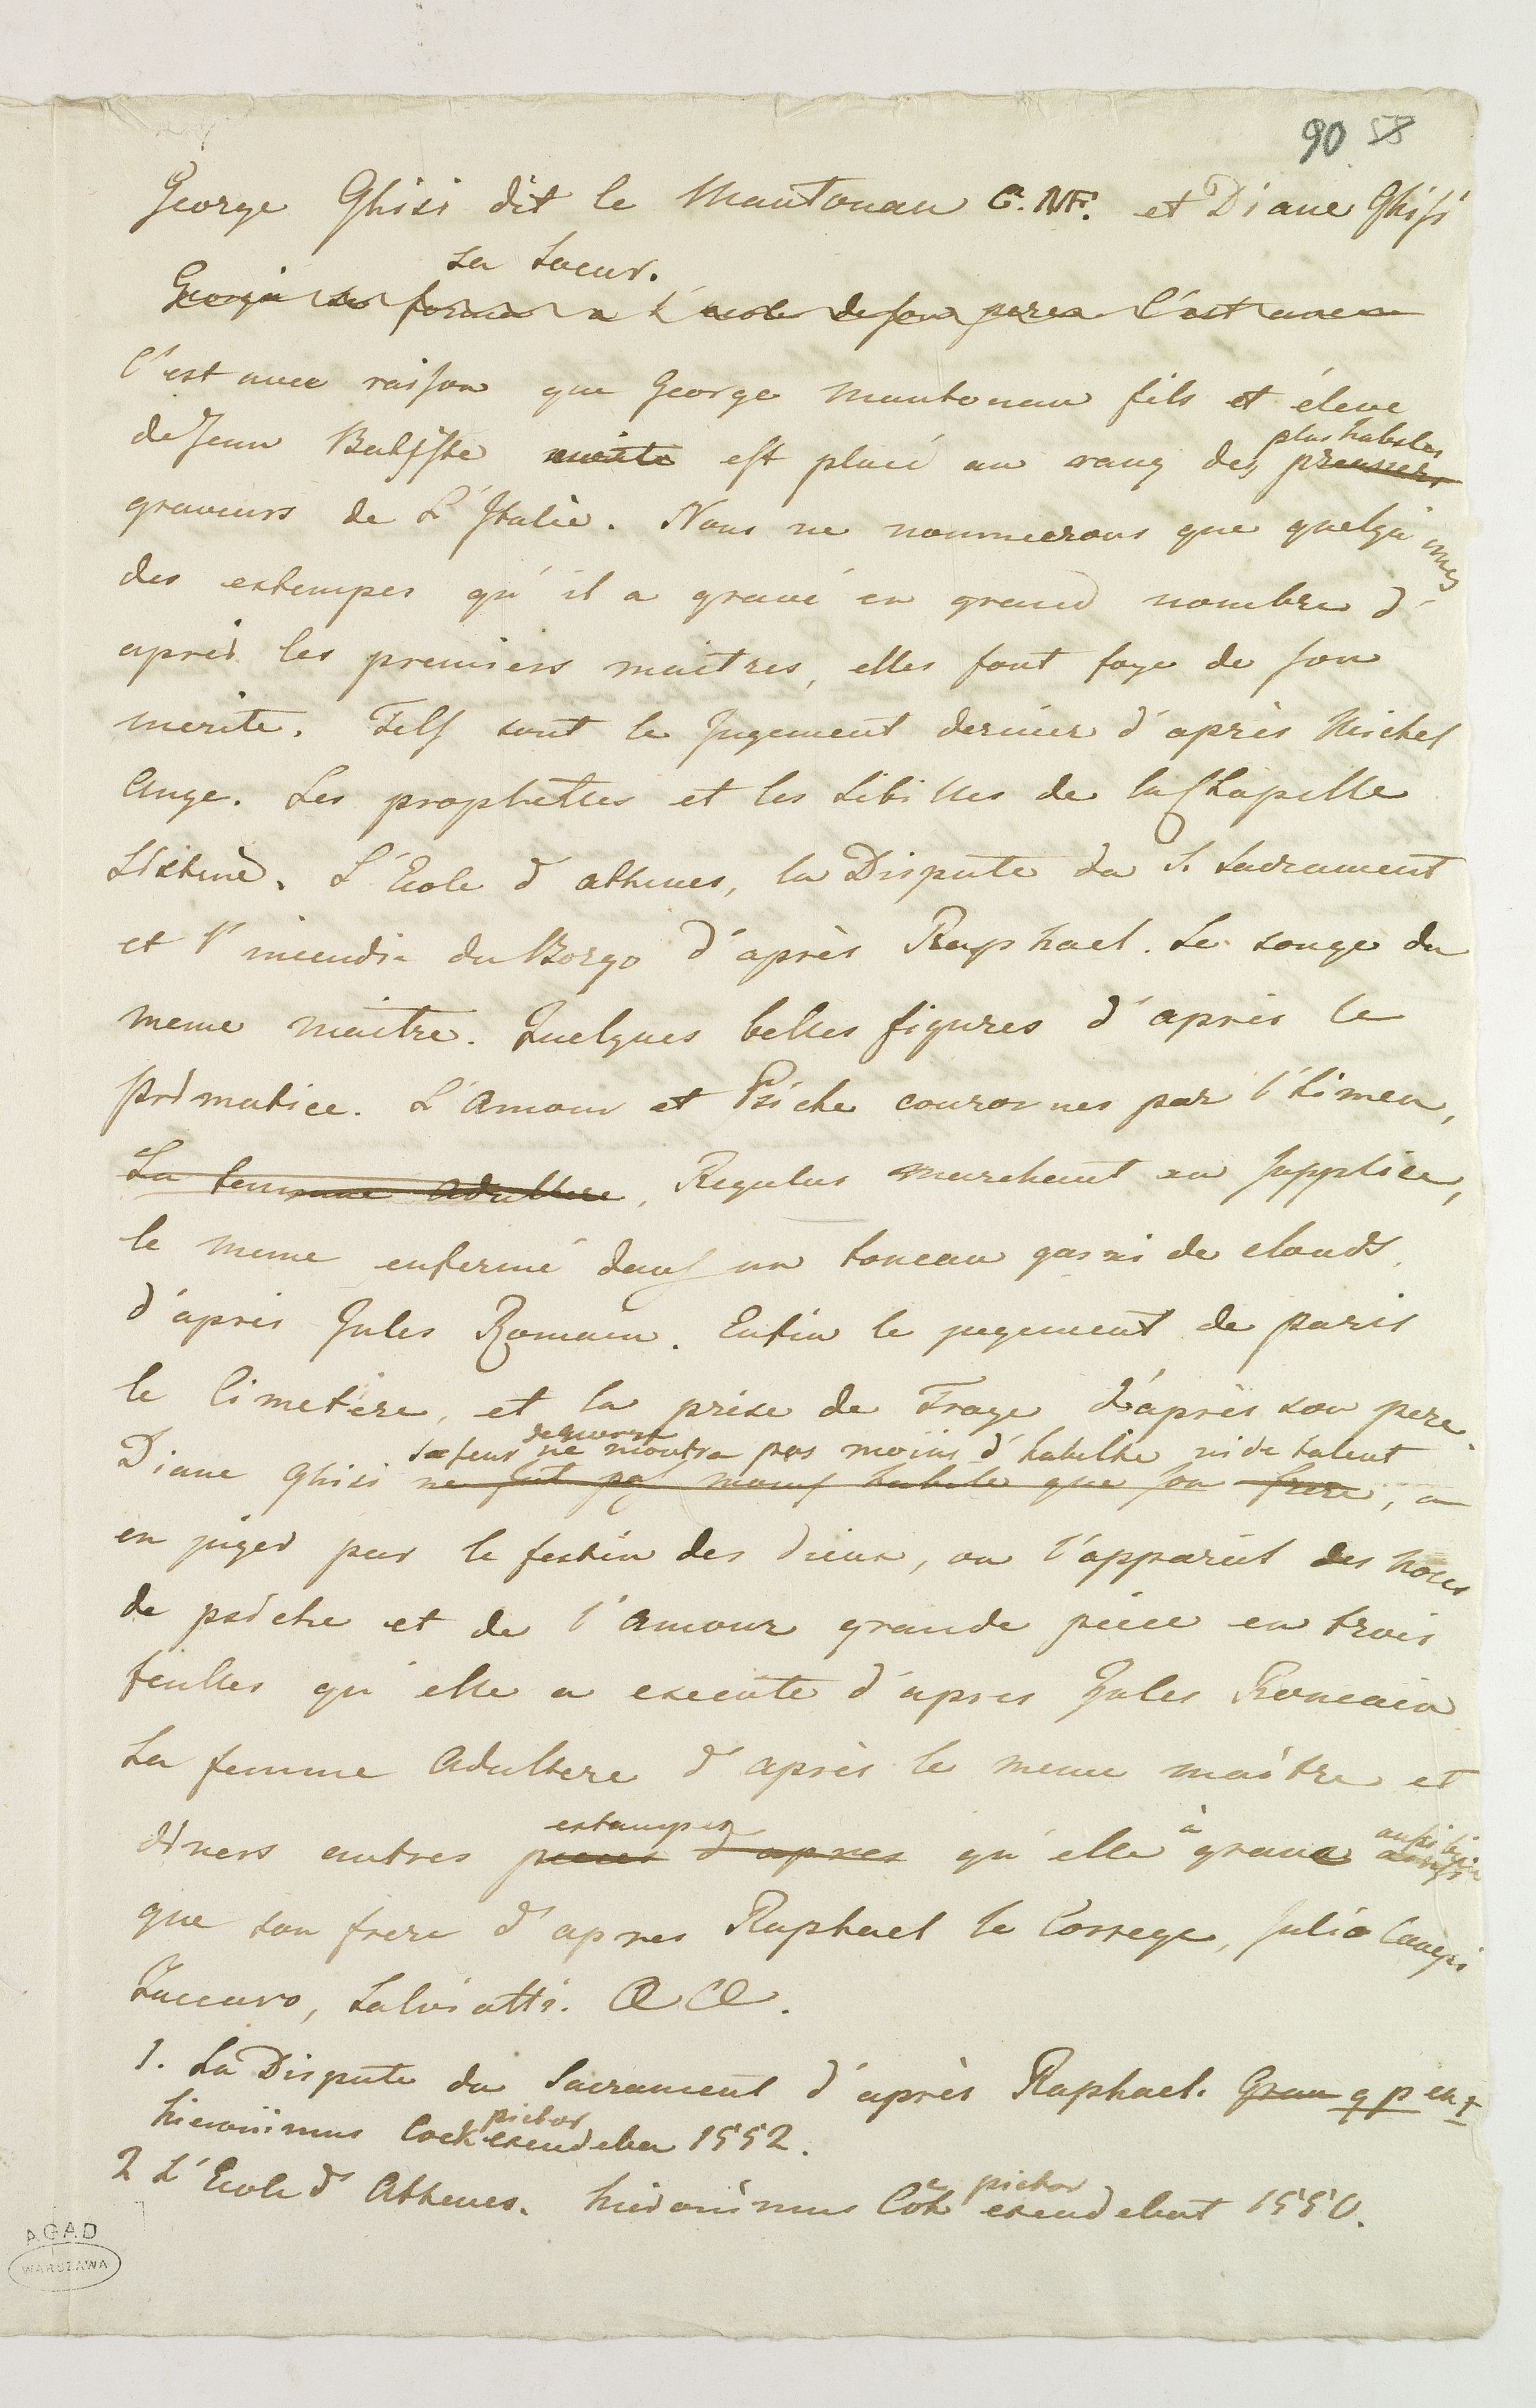 90 58
George Ghisi dit le Mantouan G. MF. et Diane Ghisi
sa soeur.
George se forma a l'ecole de son pere C'est avec
C'est avec raison que George Mantouan fils et éleve
de Jean Baptiste est placé au rang des premiers plus habiles
graveurs de L'Italie. Nous ne nommerons que quelqu'unes
des estampes qu'il a gravé en grand nombre d'
après les premiers maitres, elles font foye de son
merite. Tels sont le Jugement dernier d'après Michel
Ange. Les prophettes et les Sibilles de la Chapelle
Sixtine. L'Ecole d'athenes, la Dispute du S. Sacrament
et l'incendie du Borgo d'après Raphael. Le songe du
meme maitre. Quelques belles figures d'après le
primatice. L'Amour et Psiche couronnes par l'himen,
La femme adultere, Regulus marchant au supplice,
le meme enfermé dans un toneau garni de clouds
d'après Jules Romain. Enfin le jugement de paris
le Cimetiere, et la prise de Troye d'après son pere.
sa seur ne montra pas moins d'habilite ni de talent
Diane Ghisi ne fut pas moins habile que son frere, a
en juger par le festin des dieux, ou l'apparéil des noces
de psiche et de l'Amour grande piéce en trois
feulles qu'elle a execute d'apres Jules Romain
La femme Adultere d'après le meme maitre et
estampes
divers autres pieces d'apres qu'elle à grave aussi bien
que son frere d'apres Raphael le Correge, Julio Campi
Zuccaro, Salviatti. &&.
1. La Dispute du Sacrament d'après Raphael. Gran q p en
hieronimus Cock pictor excudebat 1552.
2 L'Ecole d'Athenes. hieronimus Cock pictor excudebat 1550.
AGAD
WARSZAWA